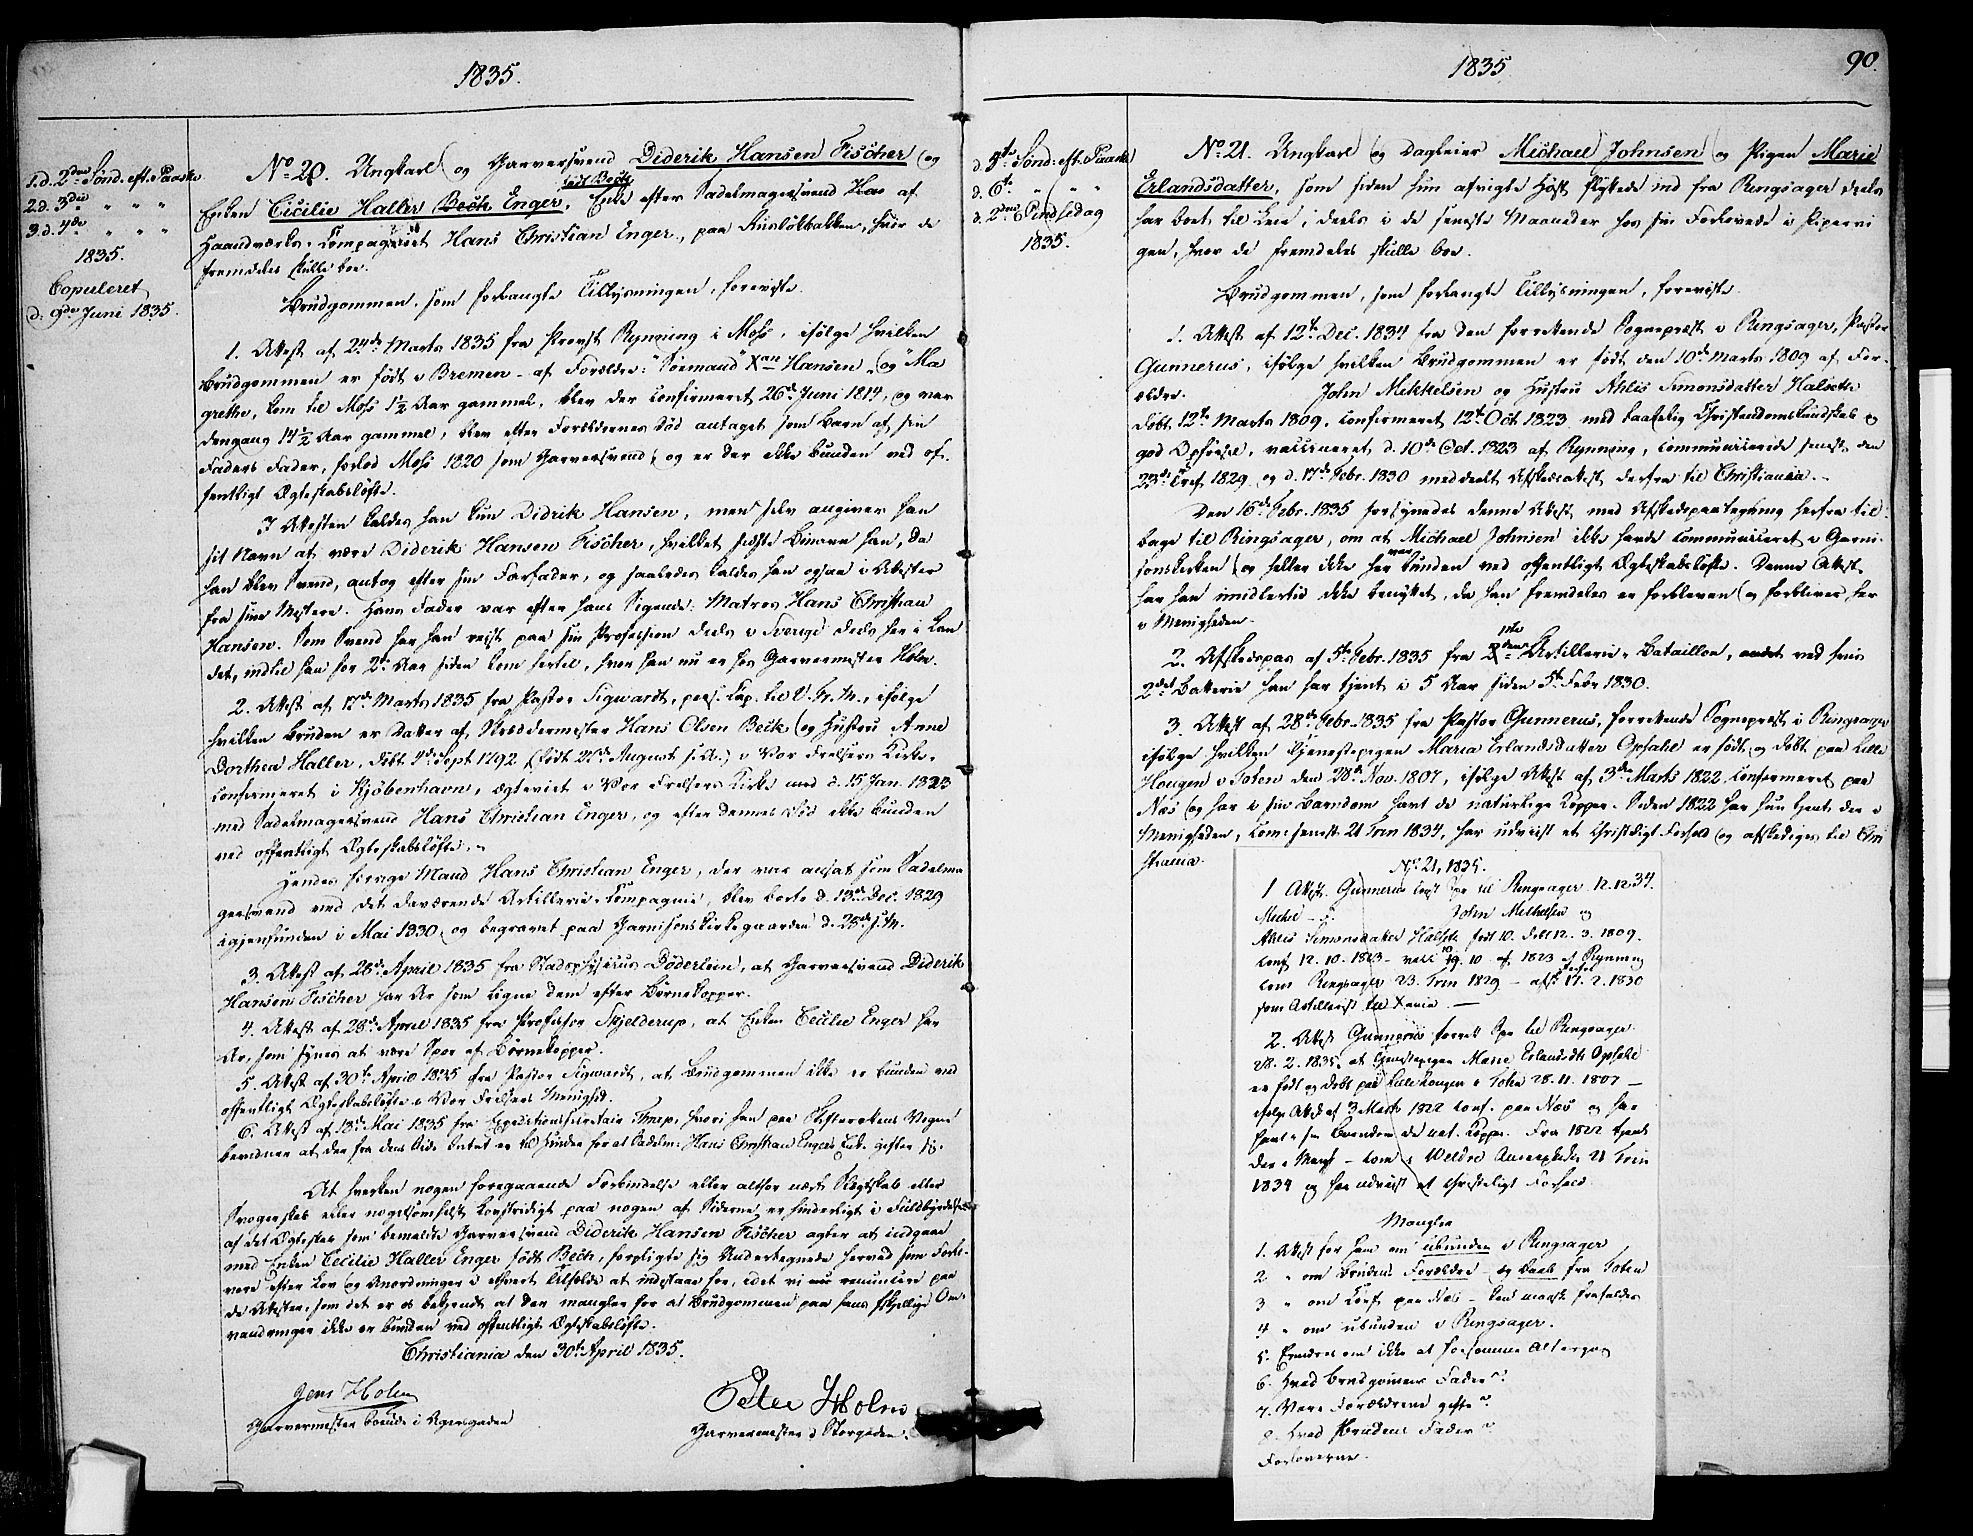 1835.
1. d. 2den Sönd: eft. Paaske
2. d. 3die " " "
3. d. 4de " " "
1835.
Copuleret
d. 9de Juni 1835.
No 20. Ungkarl og Garversvend Diderik Hansen Fischer og
født Beck
Enken Cicilie Haller Beck Enger, Enke efter Sadelmagersvend Hans af
Haandværks-Compagniet Hans Christian Enger, paa, hvor de
fremdeles skulle boe.
Brudgommen, som forlangte Tillysningen, foreviste.
1. Attest af 24de Marts 1835 fra Provst Rynning i Moss, ifölge hvilken
Brudgommen er födt i Bremen af Forældre: "Sömand" Xan Hansen og "Ma
grethe, kom til Moss 1½ Aar gammel, blev der confirmeret 26de Juni 1814, og var
dengang 14½ Aar gammel, blev efter Forældrenes Död antaget som Barn af sin
Faders Fader, forlod Moss 1820 som Garversvend, og er der ikke bunden ved of-
fentligt Ægteskabslöfte.
I Attesten kaldes han kun Didrik Hansen, men selv angiver han
sit Navn at være Diderik Hansen Fischer, hvilket sidste Binavn han, da
han blev Svend, antog efter sin Farfader, og saaledes kaldes han ogsaa i Attester
fra sine Mestere. Hans Fader var efter hans Sigende: Matros Hans Christian
Hansen. Som Svend har han reist paa sin Profession deels i Sverige deels her i Lan
det, indtil han for 2de Aar siden kom hertil, hvor han nu er hos Garvermester Holm.
2. Attest af 17de Marts 1835 fra Pastor Sigwardt, pers. Cap. til V. Fr. M., ifölge
hvilken Bruden er Datter af Skræddermester Hans Olsen Beck og Hustru Anne
Dorthea Haller, döbt 4de Sept 1792 (födt August s. A.) i Vor Frelsers Kirke,
confirmeret i Kjöbenhavn, ægteviet i Vor Frelsers Kirke med d. 15 Jan. 1823
med Sadelmagersvend Hans Christian Enger, og efter dennes Död ikke bunden
ved offentligt Ægteskabslöfte.
Hendes forrige Mand Hans Christian Enger, der var ansat som Sadelma
gersvend ved det daværende Artillerie-Compagnie, blev borte d. 13de Dec. 1829
igjenfunden i Mai 1830 og begravet paa Garnisonskirkegaarden d. 25de s. M.
3. Attest af 28de April 1835 fra Stadsphysicus Döderlein, at Garversvend Diderik
Hansen Fischer har Ar som ligne dem efter Börnekopper.
4. Attest af 28de April 1835 fra Professor Skjelderup, at Enken Cecilie Enger har
Ar, som synes at være Spor af Börnekopper.
5. Attest af 30te April 1835 fra Pastor Sigwardt, at Brudgommen ikke er bunden ved
offentligt Ægteskabslöfte i Vor Frelsers Menighed.
6. Attest af 13de Mai 1835 fra Expeditionssecretair Thrap, hvori han paa Skifterettens Vegne
bevidner at der fra dens Side Intet er til Hinder for at Sadelm: Hans Christian Engers Enke gifter sig.
At hverken nogen foregaaende Forbindelse eller altfor nært Slægtskab eller
Svogerskab eller nogetsomhelst Lovstridigt paa nogen af Siderne er hinderligt i Fuldbyrdelsen
af det Ægteskab som bemeldte Garversvend Diderik Hansen Fischer agter at indgaae
med Enken Cecilie Haller Enger födt Beck, forpligte sig Undertegnede herved som Forlo-
vere efter Lov og Anordninger i ethvert Tilfælde at indestaae for, idet vi renuncere paa
de Attester, som det er os bekjendt at der mangler for at Brudgommen paa hans forskjellige Om-
vandringer ikke er bunden ved offentligt Ægteskabslöfte.
Christiania den 30te April 1835.
Jens Holm
Garvermester boende i Agersgaden
Peter Holm
Garvermester i Storgaden.
1835
90.
d. 5te Sönd: eft. Paaske
d. 6te " " "
d. 2den Pindsedag
1835.
No 21. Ungkarl og Dagleier Michael Johnsen og Pigen Marie
Erlandsdatter, som siden hun afvigte Höst flyttede ind fra Ringsager deels
har boet til Leie, deels i de seneste Maaneder hos sin Forlovede i Pipervi
gen, hvor de fremdeles skulle boe.
Brudgommen, som forlangte Tillysningen, foreviste.
1. Attest af 12te Dec. 1834 fra den forrettende Sognepræst i Ringsager, Pastor
Gunnerus, ifölge hvilken Brudgommen er födt den 10de Marts 1809 af For-
ældre. John Mikkelsen og Hustru Ahlis Simonsdatter Halseth
döbt 12te Marts 1809, confirmeret 12te Oct 1823 med taalelig Christendomskundskab og
god Opförsel, vaccineret d. 10de Oct. 1823 af Rynning, communicerede senest den
23de Tref. 1829 og d. 17de Febr. 1830 meddeelt Afskedsattest derfra til Christiania.
Den 16de Febr. 1835 forsynedes denne Attest med Afskedspaategning herfra til-
bage til Ringsager, om at Michael Johnsen ikke havde communiceret i Garni-
sonskirken og heller ikke her var bunden ved offentligt Ægteskabslöfte. Denne Attest
har han imidlertid ikke benyttet, da han fremdeles er forbleven og forbliver her
i Menigheden.
1ste
2. Afskedspas af 5te Febr. 1835 fra Artillerie-Bataillon, ved hvis
2det Batterie han har tjent i 5 Aar siden 5te Febr 1830.
3. Attest af 28de Febr. 1835 fra Pastor Gunnerus, forrettende Sognepræst i Ringsager
ifölge hvilken Tjenestepigen Maria Erlandsdatter Opsahl er födt og döbt paa Lille
Hougen i Toten den 28de Nov. 1807, ifölge Attest af 3de Marts 1822 confirmeret paa
Næs og har i sin Barndom havt de naturlige Kopper. Siden 1822 har hun tjent der i
Menigheden, com: senest 21 Trin 1834, har udvist et christeligt Forhold og afskediges til Chri
stiania.
No 21, 1835.
1 Attest Gunnerus const Spr til Ringsager 12. 12 34.
Michel John Mikkelsen og
Ahlis Simonsdatter Halseth født 10. døbt 12. 3. 1809.
conf 12. 10. 1823 - vacc 10. 10 af. 1823 af Rynning
com Ringsager 23. Trin 1829 - afsk 17. 2. 1830
som Artillerist til Xania. —
2. Attest Gunnerus forrett Spr til Ringsager
28. 2. 1835, at Tjenestepigen Marie Erlandsdtr Opsahl
er født og döbt paa Lille Hougen i Toten 28. 11. 1807 —
ifølge Attest af 3 Marts 1822 conf. paa Næs og har
havt i sin Barndom de nat. Kopper. Fra 1822 tjent
der i Menigh — com i Veldre Annexkirke 21 Trin
1834 og har udviist et christeligt Forhold.
Mangler
1. Attest for ham om ubunden i Ringsager
2 " om Brudens Forældre og Daab fra Toten
3 " om Conf. paa Næs
4 " om ubunden i Ringsager.
5. Erindres om ikke at forsömme Altergang
6. Hvad Brudgommens Fader?
7. Vare Forældrene gifte?
8. Hvad Brudens Fader?
Forloverne.